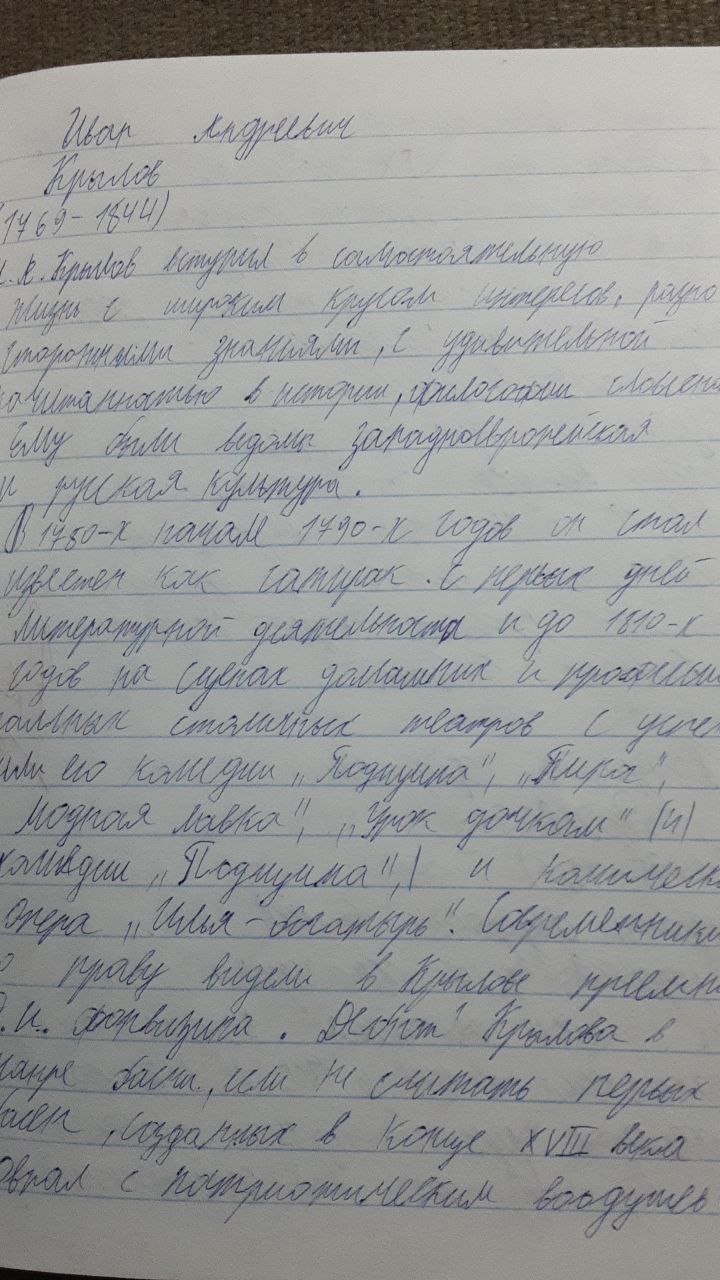 Иван Андреевич
Крылов
(1769-1844)
И.А. Крылов вступил в самостоятельную
жизнь с широким кругом интересов, разно
сторонними знаниями, с удивительной
начитанностью в истории, философии словесно
Ему были ведомы западноевропейская
и русская культура.
В 1780-х начале 1790-х годов он стал
известен как сатирик. С первых дней
литературной деятельности и до 1810-х
годов на сценах домашних и професси
альных столичных театров с успе
шли его комедии „Подщипа", „Пирог",
Модная лавка", „Урок дочкам" (и)
комедии „Подщипа",) и комическ
опера „Илья-богатырь". Современники
по праву видели в Крылове преемни
Д.И. Фонвизина. Дебют Крылова в
жанре басни, если не считать первых
басен, созданных в конце XVIII века
совпал с патриотическим воодушев